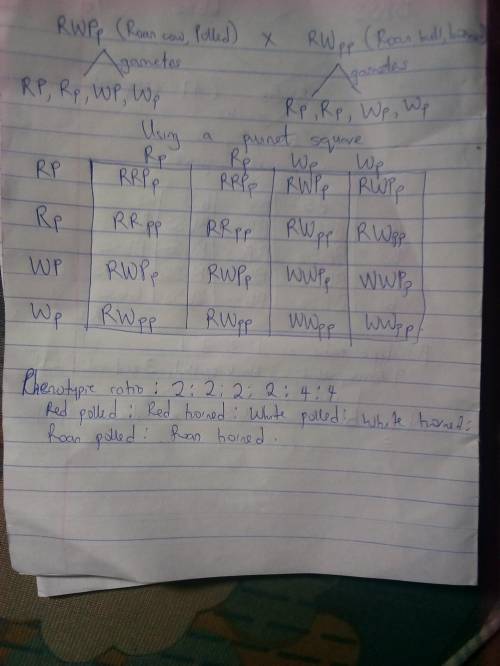 RWPp (Roan cow, Polled) x RWpp (Roan bull, horned)
gametes gametes
RP, Rp, WP, Wp Rp, Rp, Wp, Wp
Using a punnet square
Rp Rp Wp Wp
RP RRPp RRPp RWPp RWPp
Rp RRpp RRpp RWpp RWpp
WP RWPp RWPp WWPp WWPp
Wp RWpp RWpp WWpp WWpp
Phenotypic ratio : 2 : 2 : 2 : 2 : 4 : 4
Red polled : Red horned : White polled : White horned :
Roan polled : Roan horned .